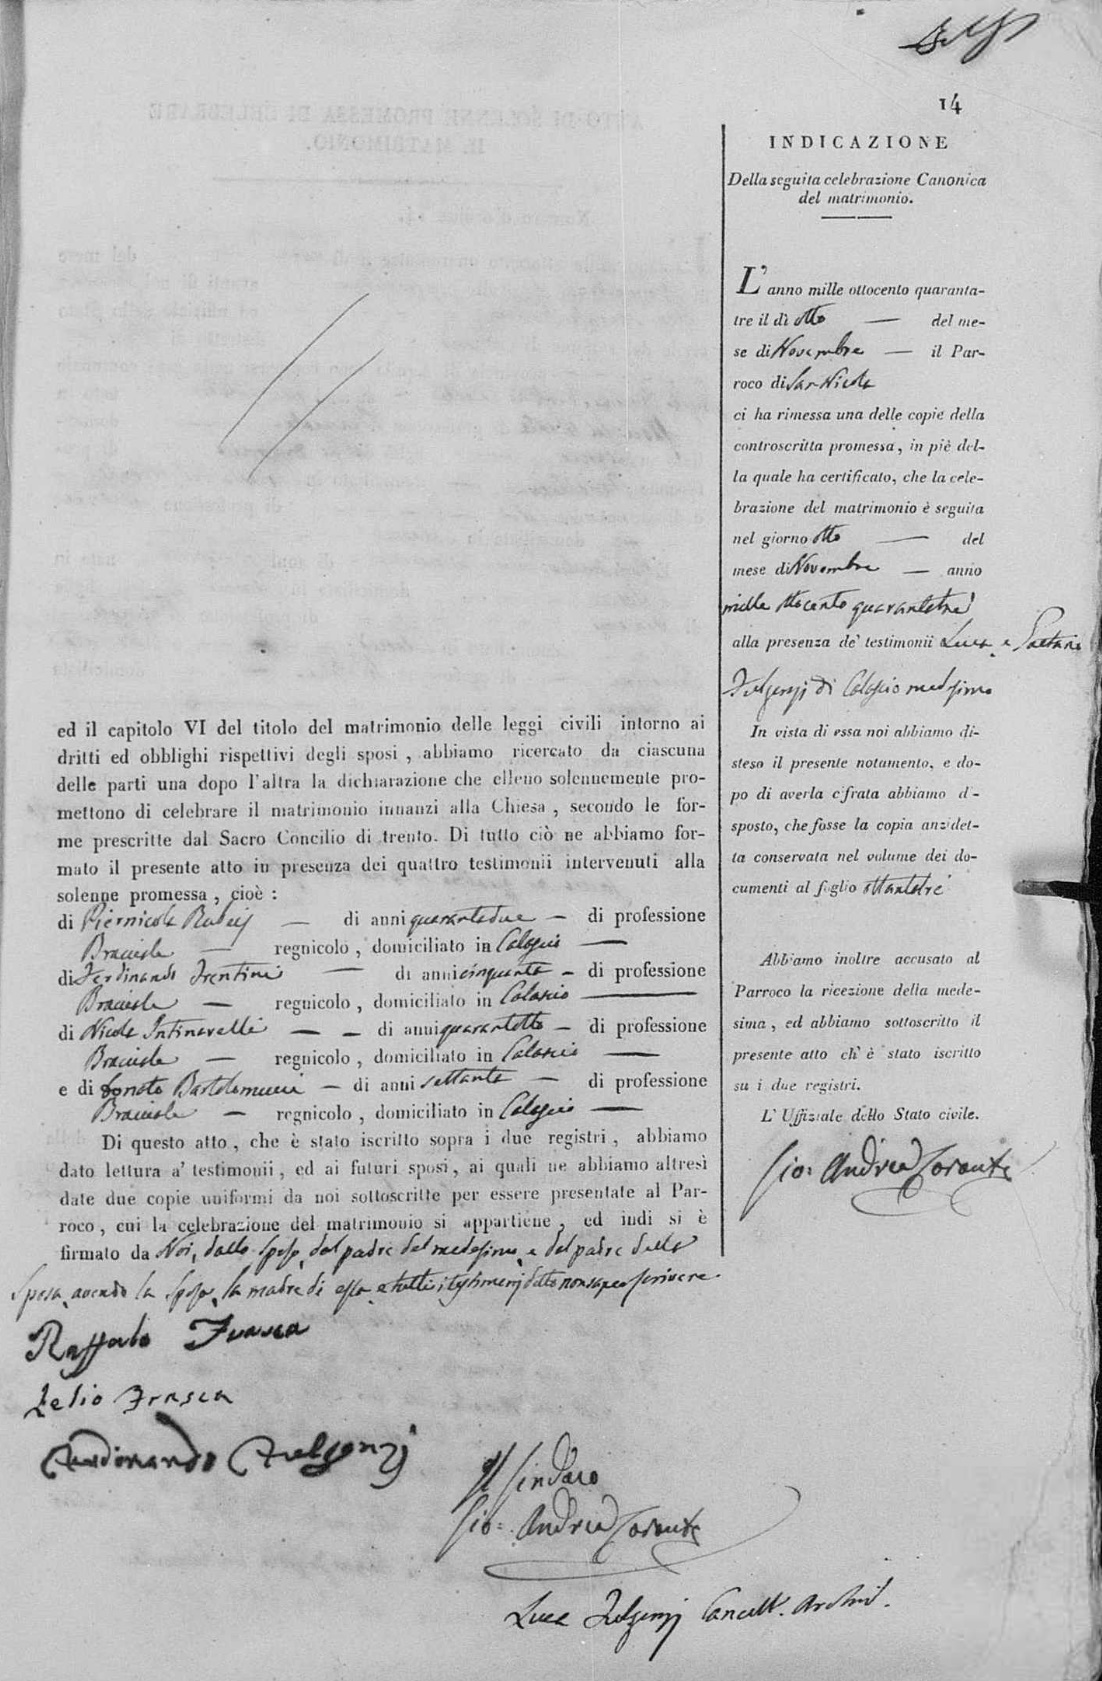 14
INDICAZIONE
Della seguita celebrazione Canonica
del matrimonio.
L'anno mille ottocento quaranta-
tre il dì otto — del me-
se di Novembre — il Par-
roco di San Nicola
ci ha rimessa una delle copie della
controscritta promessa, in piè del-
la quale ha certificato, che la cele-
brazione del matrimonio è seguita
nel giorno otto — del
mese di Novembre — anno
mille ottocento quarantatrè
alla presenza de' testimonii Luca e Gaetano
Fulgenzj di Calascio medesimo
In vista di essa noi abbiamo di-
steso il presente notamento, e do-
po di averla cifrata abbiamo di-
sposto, che fosse la copia anzidet-
ta conservata nel volume dei do-
cumenti al foglio ottantatrè
Abbiamo inoltre accusato al
Parroco la ricezione della mede-
sima, ed abbiamo sottoscritto il
presente atto ch' è stato iscritto
su i due registri.
L' Uffiziale dello Stato civile.
Gio: Andrea
ed il capitolo VI del titolo del matrimonio delle leggi civili intorno ai
dritti ed obblighi rispettivi degli sposi, abbiamo ricercato da ciascuna
delle parti una dopo l'altra la dichiarazione che elleno solennemente pro-
mettono di celebrare il matrimonio innanzi alla Chiesa, secondo le for-
me prescritte dal Sacro Concilio di trento. Di tutto ciò ne abbiamo for-
mato il presente atto in presenza dei quattro testimonii intervenuti alla
solenne promessa, cioè:
di Piernicola — di anni quarantadue — di professione
Bracciale — regnicolo, domiciliato in Calascio —
di Ferdinando Trentini — di anni cinquanta — di professione
Bracciale — regnicolo, domiciliato in Calascio —
di Nicola — — di anni quarantotto — di professione
Bracciale — regnicolo, domiciliato in Calascio —
e di Donato Bartolomucci — di anni settanta — di professione
Bracciale — regnicolo, domiciliato in Calascio —
Di questo atto, che è stato iscritto sopra i due registri, abbiamo
dato lettura a' testimonii, ed ai futuri sposi, ai quali ne abbiamo altresì
date due copie uniformi da noi sottoscritte per essere presentate al Par-
roco, cui la celebrazione del matrimonio si appartiene, ed indi si è
firmato da Noi, dallo sposo, dal padre del medesimo, e dal padre della
Sposa, avendo la sposa, la madre di essa e tutti i testimonj detto non saper scrivere
Raffaele Frasca
Lelio Frasca
Ferdinando Fulgenzj
Il Sindaco
Gio: Andrea
Luca Fulgenzj Cancell. Archiv.